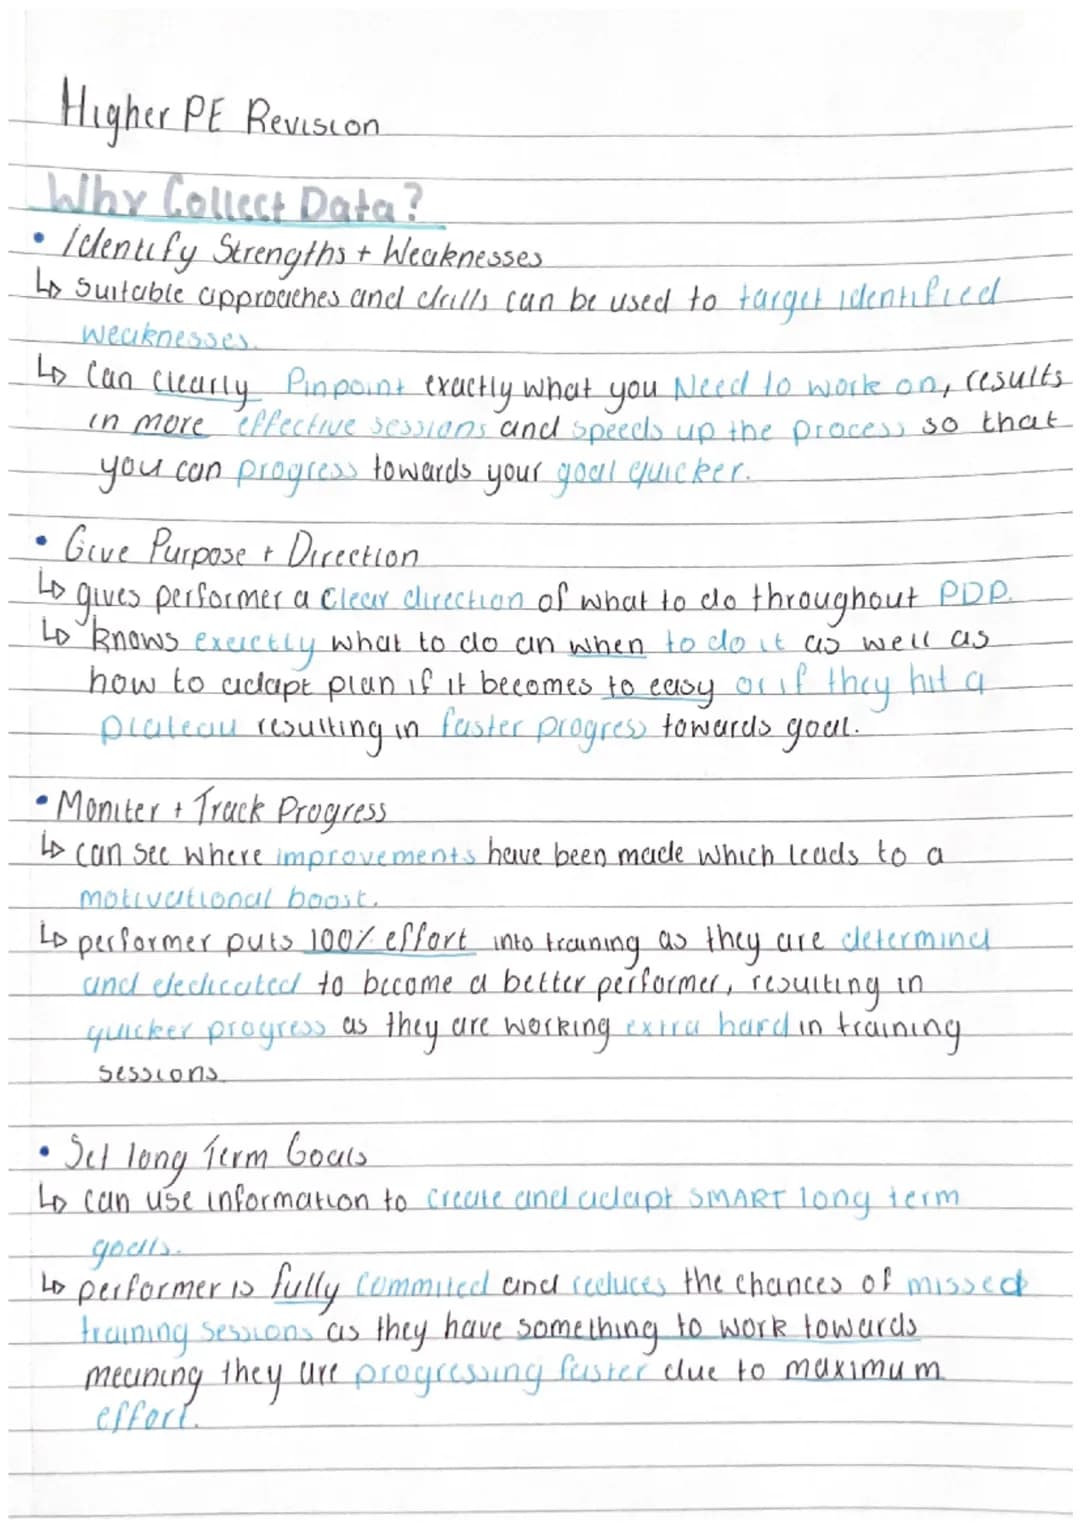 Higher PE Revision
Why Collect Data?
• Identify Strengths + Weaknesses
↳ Suitable approaches and drills can be used to target identified
weaknesses.
↳ Can clearly Pinpoint exactly what you Need to work on, results
in more effective sessions and speeds up the process so that
you can progress towards your goal quicker.
• Give Purpose + Direction
↳ gives performer a clear direction of what to do throughout PDP.
↳ knows exactly what to do an when to do it as well as
how to adapt plan if it becomes to easy or if they hit a
plateau resulting in faster progress towards goal.
• Moniter + Track Progress
↳ can see where improvements have been made which leads to a
motivational boost.
↳ performer puts 100% effort into training as they are determind
and dedicated to become a better performer, resulting in
quicker progress as they are working extra hard in training
sessions.
• Set long Term Goals
↳ can use information to create and adapt SMART long term
goals.
↳ performer is fully commited and reduces the chances of missed
training sessions as they have something to work towards
meaning they are progressing faster due to maximum
effort.